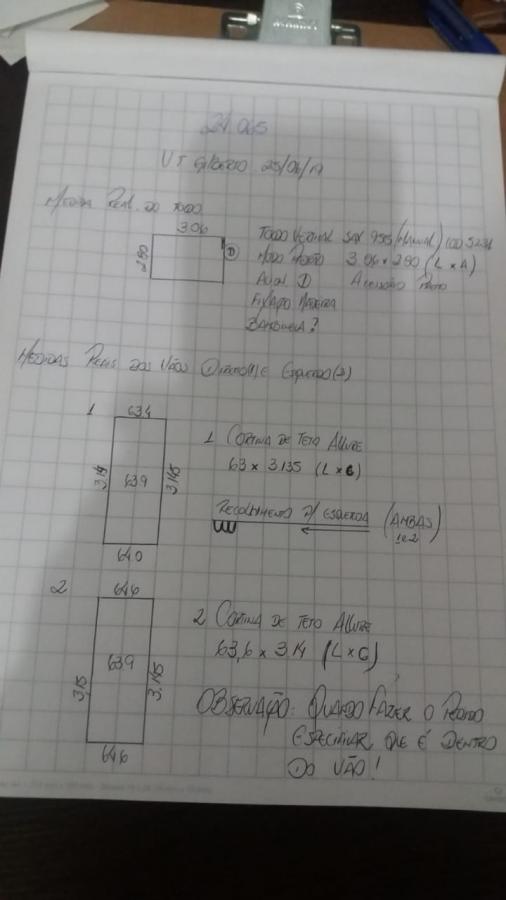 21.065
VT GILBERTO 25/06/19
MEDIDA REAL DO TODO
3.06
2.80
D
TODO VERTICAL 955 (MANUAL)
MODO 3.06 x 2.80 (L x A)
D
FIXAÇÃO MADEIRA
BANDUELA?
MEDIDAS REAIS DOS VÃOS DIREITO(1) E ESQUERDO(2)
1
634
3.14
639
3.145
640
1 CORTINA DE TETO ALLURE
63 x 3.135 (L x C)
RECOLHIMENTO P/ ESQUERDA (AMBAS
1e2)
2
646
3.15
639
3.145
646
2 CORTINA DE TETO ALLURE
63,6 x 3.14 (L x C)
OBSERVAÇÃO: QUANDO FAZER O PEDIDO
ESPECIFICAR QUE É DENTRO
DO VÃO!